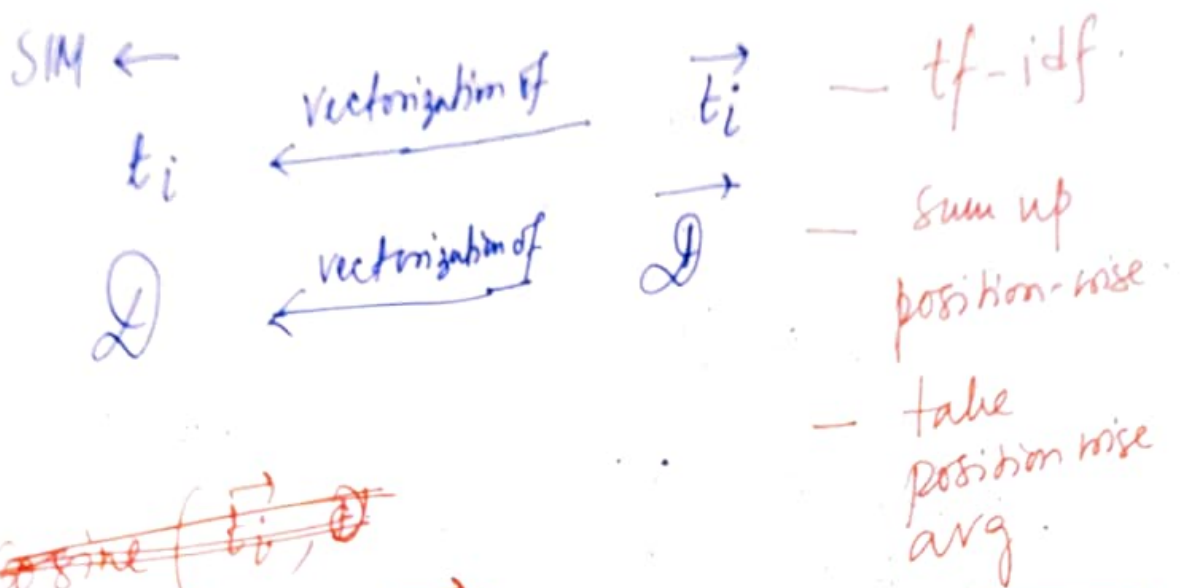 SIM ←
vectorization of
t⃗i — tf-idf.
ti ←
vectorization of
D⃗ — sum up
position-wise.
D ←
— take
position wise
avg.
cosine (t⃗i, D